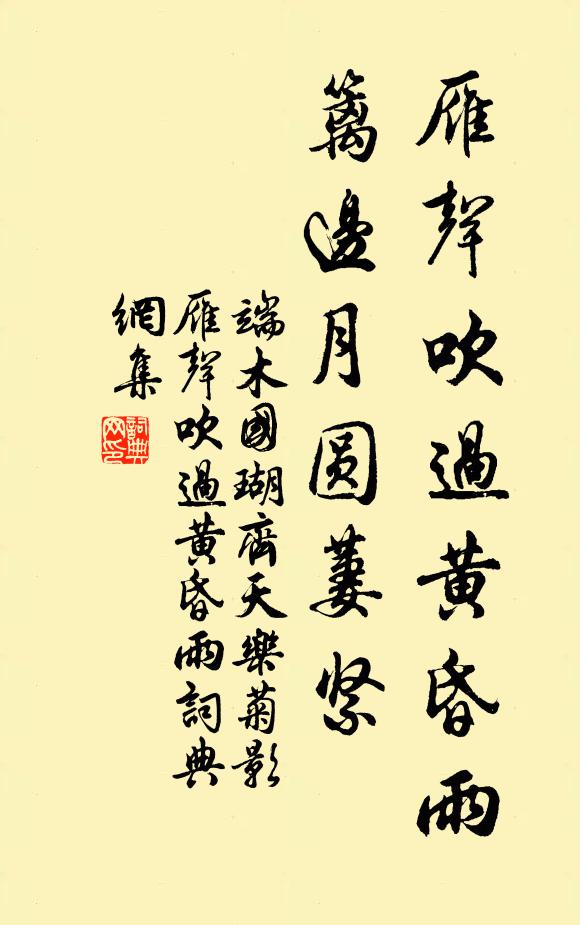 雁聲吹過黃昏雨
籬邊月圓蔞紧
端木國瑚齊天樂菊影
雁聲吹過黃昏雨詞典
網集
詞典
网印